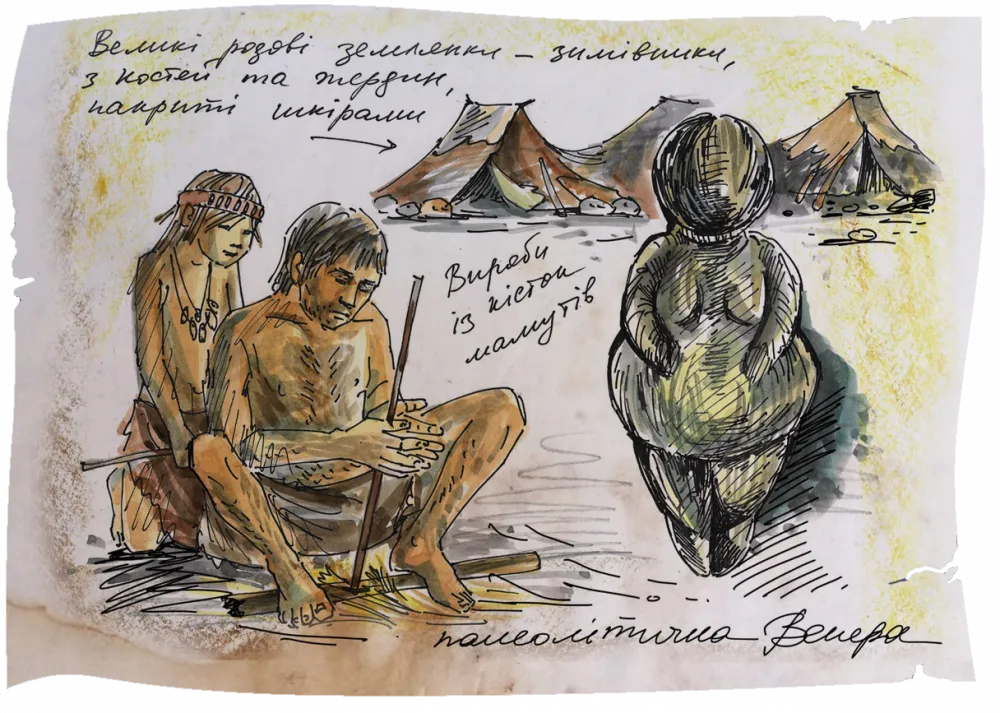 Великі родові землянки – зимівники,
з костей та жердин,
накриті шкірами
Вироби
із кісток
мамутів
палеолітична Венера